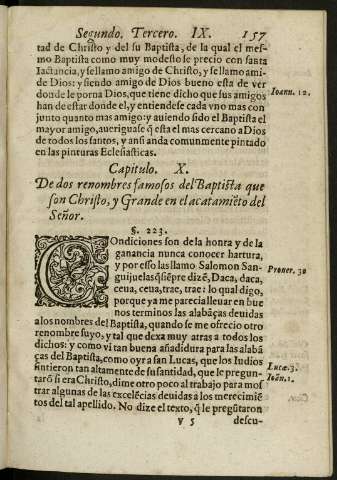 Segundo. Tercero. IX. 157
tad de Christo y del su Baptista, de la qual el mes-
mo Baptista como muy modesto se precio con santa
Iactancia, y se llamo amigo de Christo, y se llamo ami-
de Dios: y siendo amigo de Dios bueno esta de ver
donde le porna Dios, que tiene dicho que sus amigos
Ioann. 12.
han de estar donde el, y entiendese cada vno mas con
junto quanto mas amigo: y auiendo sido el Baptista el
mayor amigo, aueriguase q̃ esta el mas cercano a Dios
de todos los santos, y ansi anda comunmente pintado
en las pinturas Eclesiasticas.
Capitulo. X.
De dos renombres famosos del Baptista que
son Christo, y Grande en el acatamiẽto del
Señor.
§. 223.
Condiciones son de la honra y de la
ganancia nunca conocer hartura,
y por esso las llamo Salomon San-
Prouer. 30
guijuelas q̃ siẽpre dizẽ, Daca, daca,
ceua, ceua, trae, trae: lo qual digo,
porque ya me parecia lleuar en bue
nos terminos las alabãças deuidas
a los nombres del Baptista, quando se me ofrecio otro
renombre suyo, y tal que dexa muy atras a todos los
dichos: y como vi tan buena añadidura para las alabã
ças del Baptista, como oyr a san Lucas, que los Iudios
Lucæ. 3.
sintieron tan altamente de su santidad, que le pregun-
Ioãn. 1.
tarõ si era Christo, dime otro poco al trabajo para mos
trar algunas de las excelẽcias deuidas a los merecimiẽ
tos del tal apellido. No dize el texto, q̃ le pregũtaron
V 5 descu-